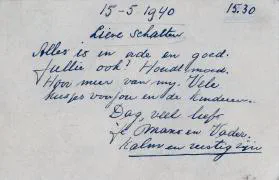 15-5-1940 15.30
Lieve schatten
Alles is in orde en goed.
Jullie ook? Houdt moed.
Hoor meer van my. Vele
kusjes voor jou en de kinderen.
Dag, veel liefs
je Mans en Vader.
Kalm en rustig zijn